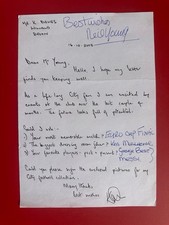 Best wishes
Neil Young
Dear Mr Young,
Hello, I hope my letter
finds you keeping well.
As a life long City fan I am excited by
events at the club over the last couple of
months. The future looks extremely bright.
Could I ask -
1) Your most memorable match?
2) The biggest dressing room joker?
3) Your favourite players - past + present?
George Best
Could you please sign the enclosed pictures for my
City football collection.
Many thanks,
Best wishes